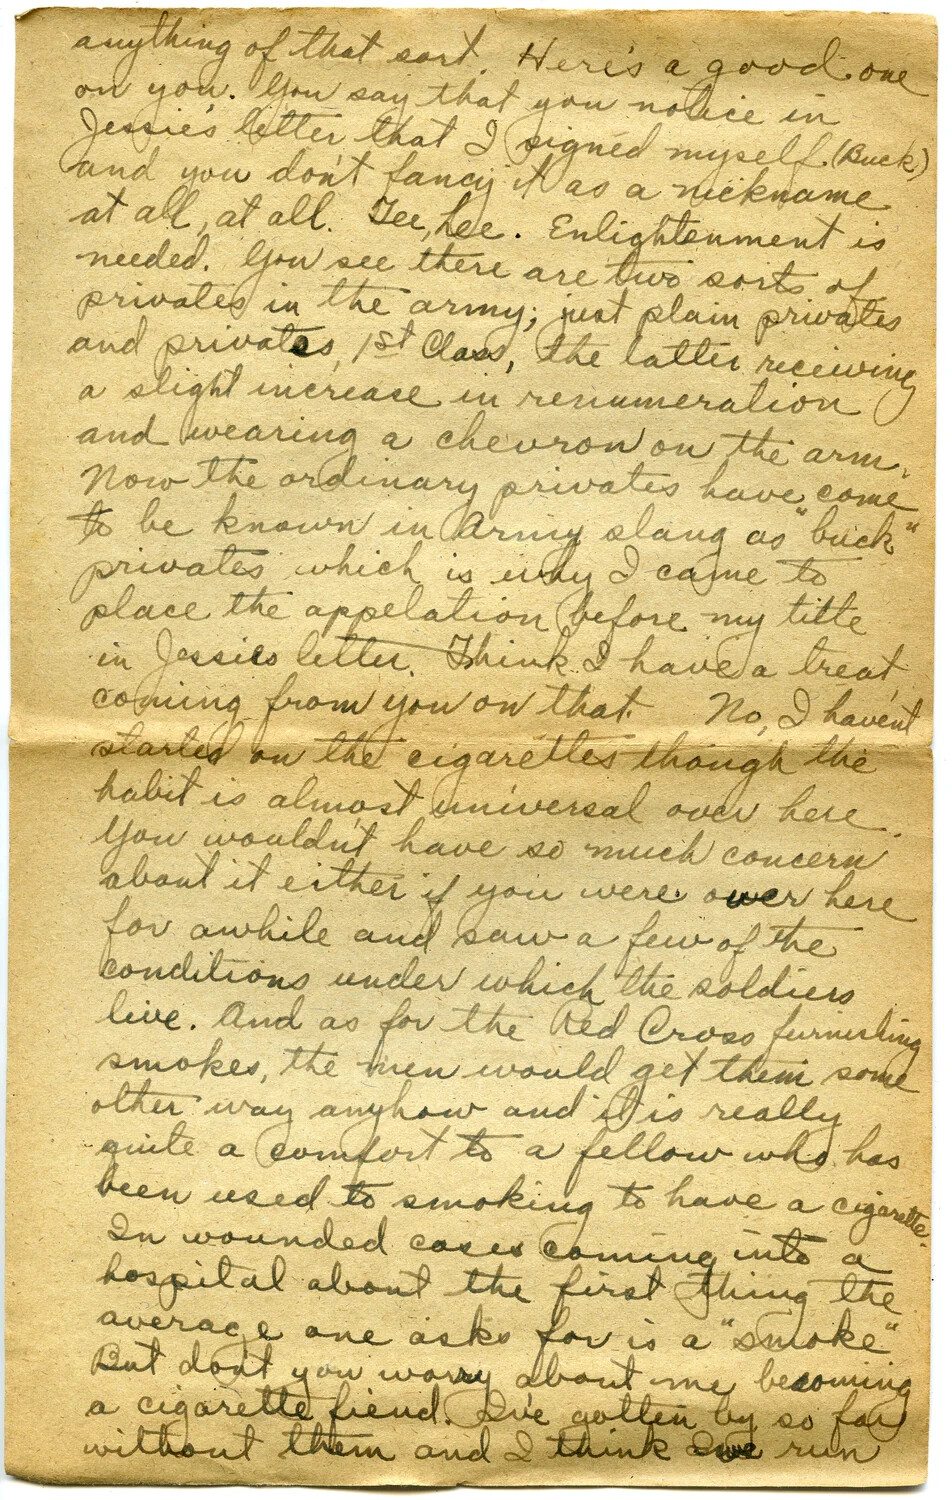 anything of that sort. Here's a good one
on you. You say that you notice in
Jessie's letter that I signed myself (Buck)
and you don't fancy it as a nickname
at all, at all. Tee, hee. Enlightenment is
needed. You see there are two sorts of
privates in the army; just plain privates
and privates, 1st Class, the latter receiving
a slight increase in renumeration
and wearing a chevron on the arm.
Now the ordinary privates have come
to be known in Army slang as "buck"
privates which is why I came to
place the appelation before my title
in Jessies letter. Think I have a treat
coming from you on that. No, I haven't
started on the cigarettes though the
habit is almost universal over here.
You wouldn't have so much concern
about it either if you were over here
for awhile and saw a few of the
conditions under which the soldiers
live. And as for the Red Cross furnishing
smokes, the men would get them some
other way anyhow and it is really
quite a comfort to a fellow who has
been used to smoking to have a cigarette.
In wounded cases coming into a
hospital about the first thing the
average one asks for is a "smoke"
But don't you worry about me becoming
a cigarette fiend. I've gotten by so far
without them and I think I've run